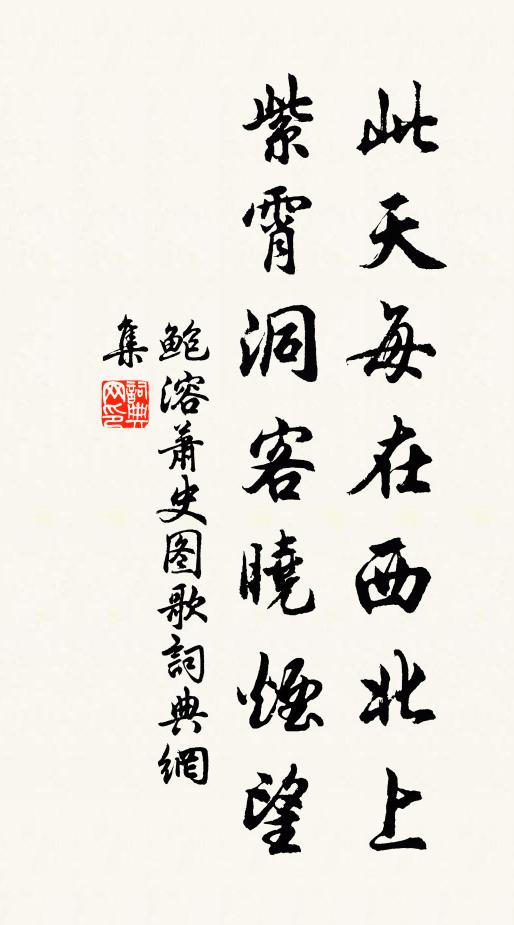 此天每在西北上
紫霄洞客曉煙望
鮑溶蕭史图歌詞典網
集
詞典
网印